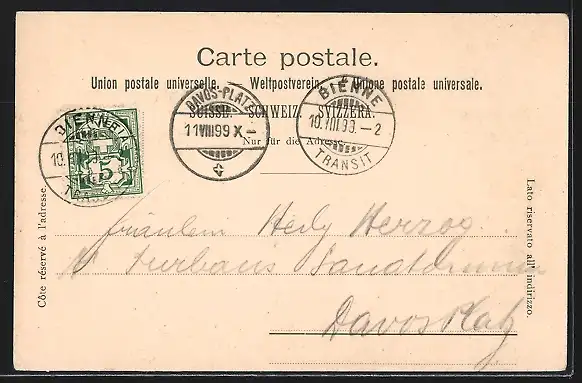 Carte postale.
Union postale universelle. Weltpostverein. Unione postale universale.
SUISSE. SCHWEIZ. SVIZZERA.
Nur für die Adresse.
DAVOS-PLATZ
11 VIII 99 X-
BIENNE
10.VIII.99.-2
TRANSIT
BIENNE
10.
TRA
5
Côte réservé à l'adresse.
Lato riservato all' indirizzo.
Fräulein Hedy Herzog
Sanatorium
Davos Platz